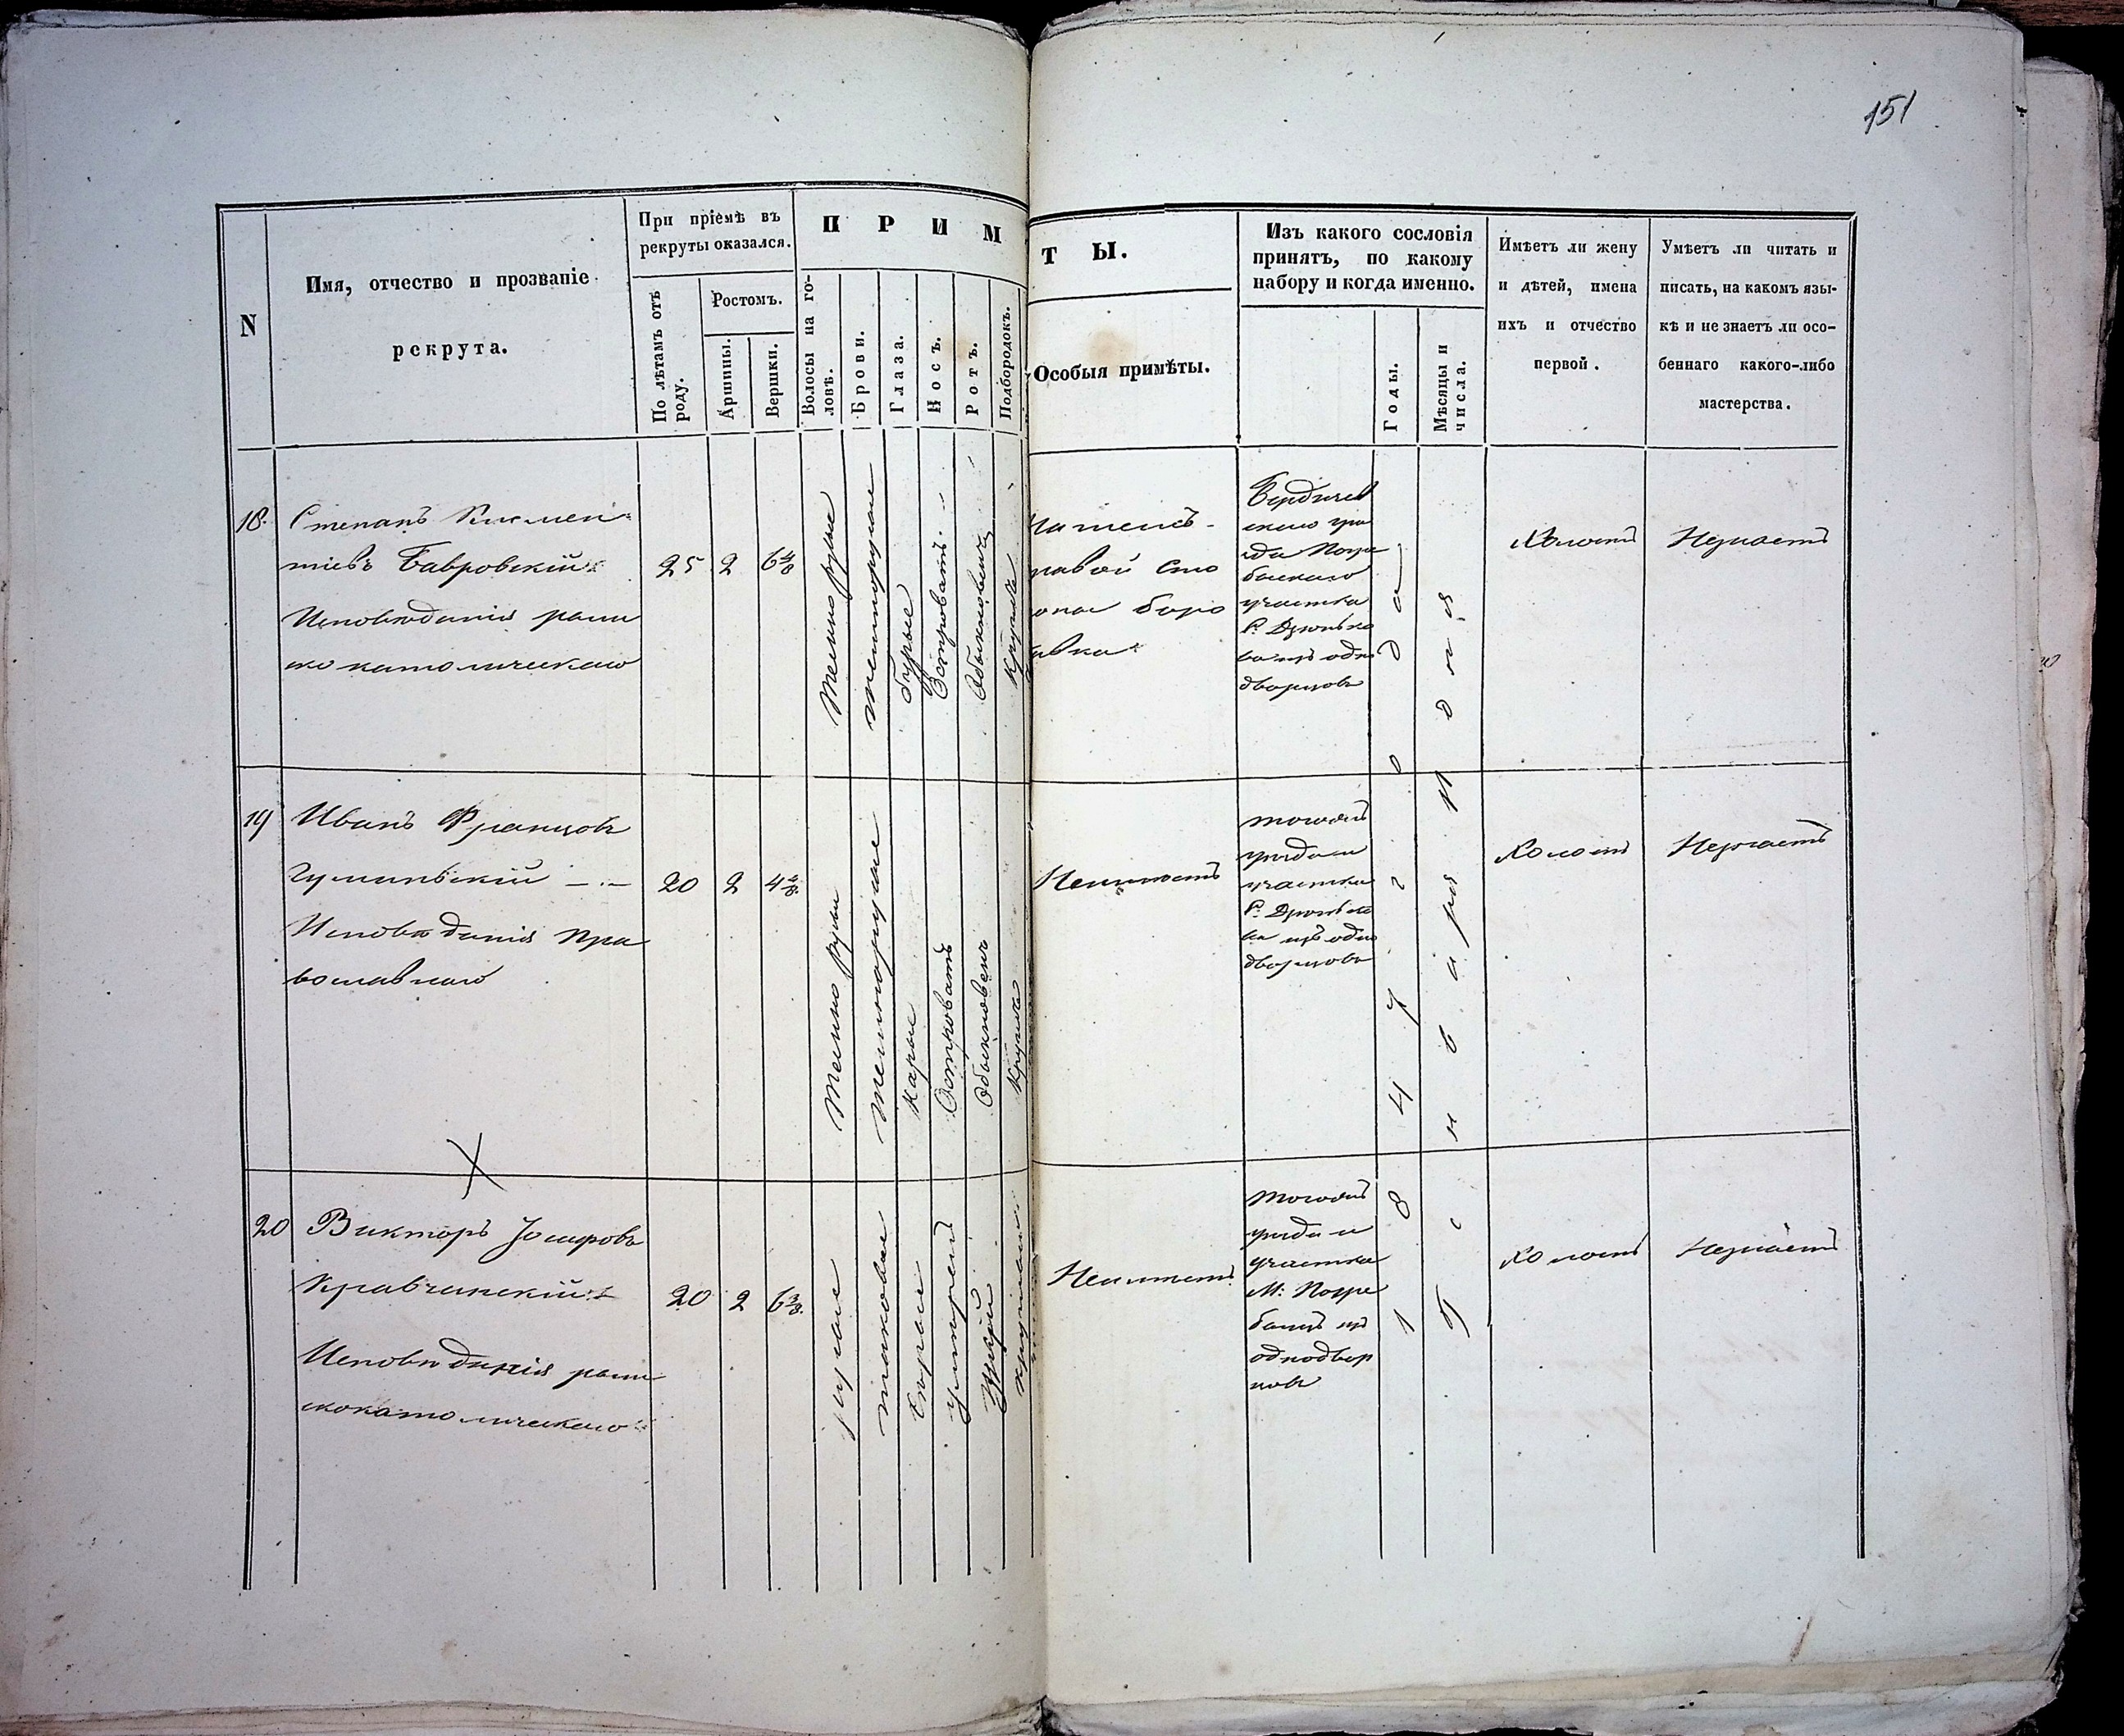 151
N
Имя, отчество и прозваніе
рекрута.
При пріемѣ въ
рекруты оказался.
По лѣтамъ отъ
роду.
Ростомъ.
Аршины.
Вершки.
П Р И М
Т Ы.
Волосы на го-
ловѣ.
Брови.
Глаза.
Носъ.
Ротъ.
Подбородокъ.
Особыя примѣты.
Изъ какого сословія
принятъ, по какому
набору и когда именно.
Годы.
Мѣсяцы и
числа.
Имѣетъ ли жену
и дѣтей, имена
ихъ и отчество
первой.
Умѣетъ ли читать и
писать, на какомъ язы-
кѣ и не знаетъ ли осо-
беннаго какого-либо
мастерства.
18.
Степанъ Климен
тіевъ Бавровскій
Исповѣданія рим
ско католическаго
25
2
6 4/8
Темно русые
темнорусые
Бурые
Островатъ
Обыкновенъ
Круглъ
правой сто
роны боро
давка
Бердичев
скаго уѣз
да Погре
бискаго
участка
С. Дзюнько
ва изъ одно
дворцовъ
Холостъ
Незнаетъ
19
Иванъ Францовъ
Гуминьскій
Исповѣданія Пра
вославнаго
20
2
4
Темно русы
темнорусые
Карые
Островатъ
Обыкновенъ
Круглъ
Неимѣетъ
тогожъ
уѣзда и
участка
С. Дзюнько
ва изъ одно
дворцовъ
Холостъ
Незнаетъ
20
Викторъ Іосифовъ
Кравчинскій
Исповѣданія рим
скокатолическаго
20
2
6 3/8
русые
таковые
Сѣрые
умѣренъ
круглый
Неимѣетъ
тогожъ
уѣзда и
участка
М. Погре
бищъ изъ
однодвор
цовъ
184 года
5 Генваря дня
Холостъ
Незнаетъ